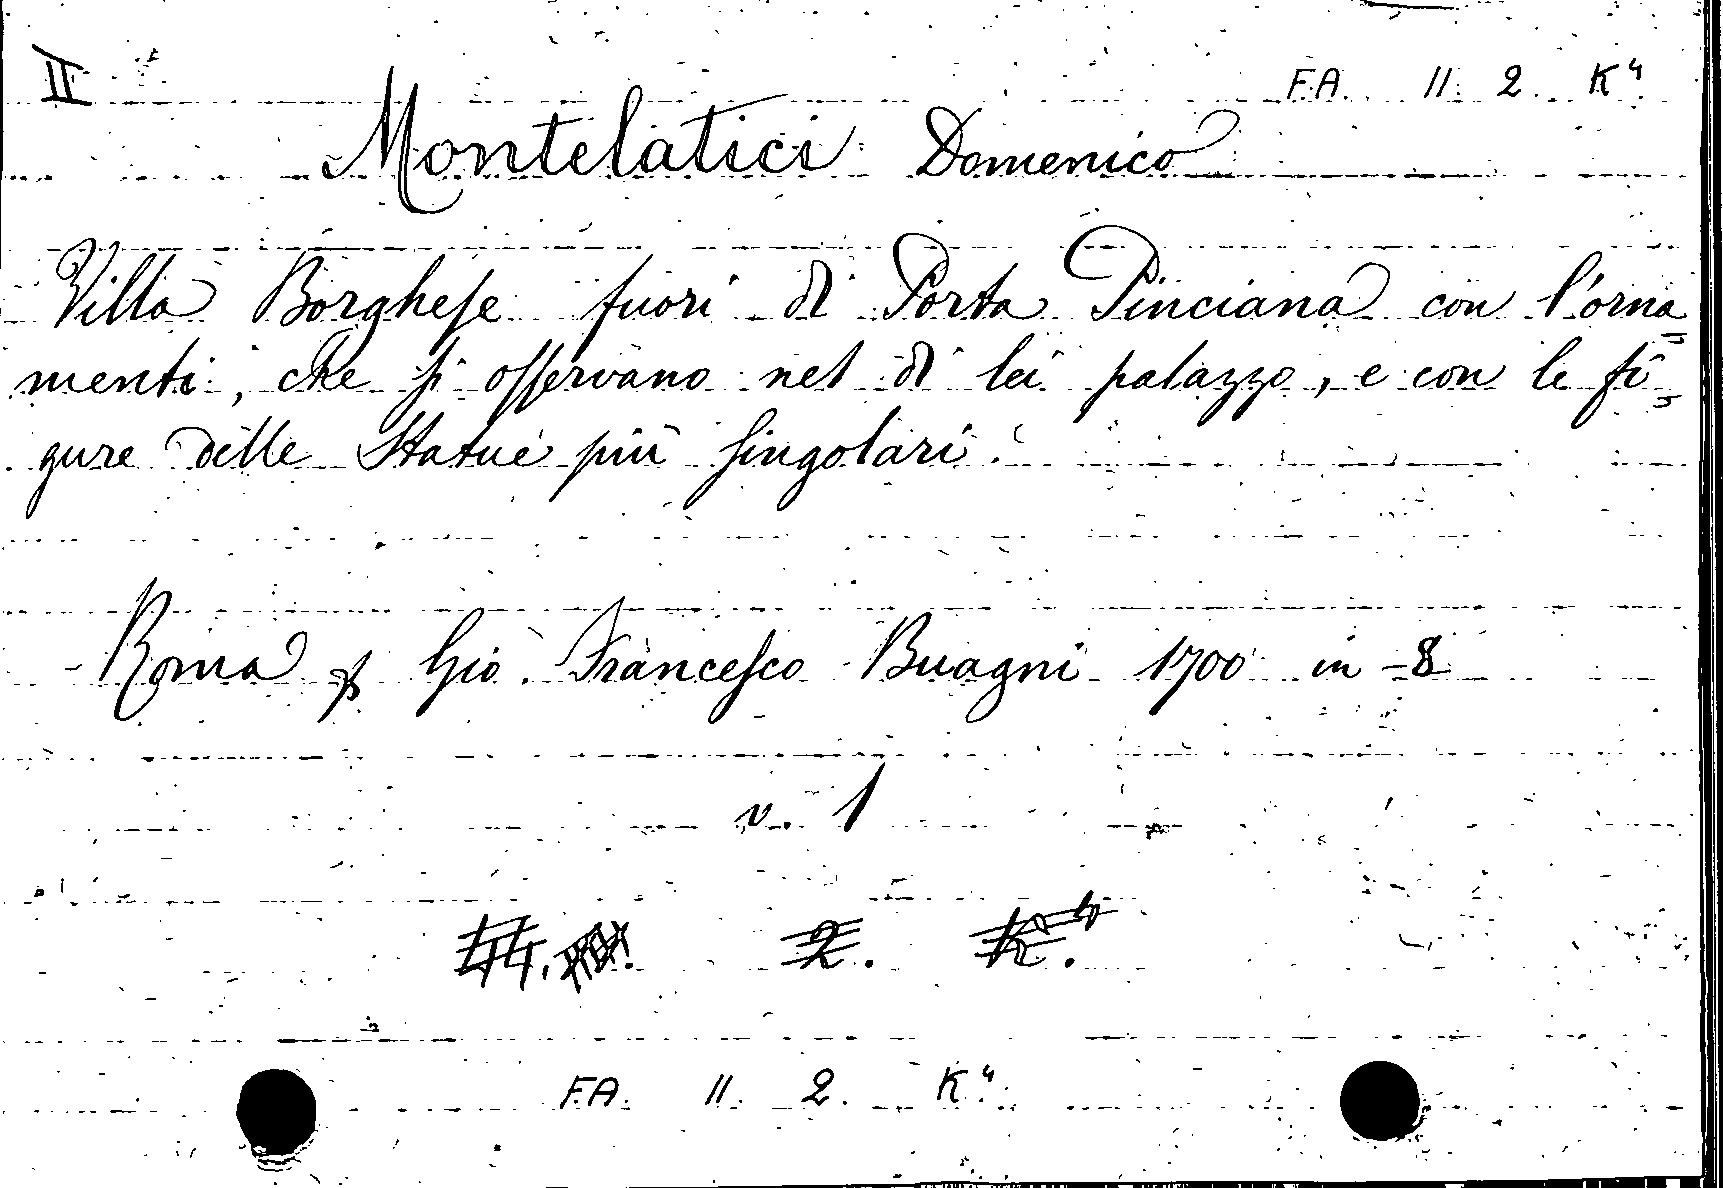 II
F.A. II. 2. K⁴.
Montelatici Domenico
Villa Borghese fuori di Porta Pinciana con l'orna=
menti, che si osservano nel di lei palazzo, e con le fi=
gure delle Statue più singolari.
Roma p Gio. Francesco Buagni 1700 in-8
v. 1
2. K⁴.
F.A. II. 2. K⁴.